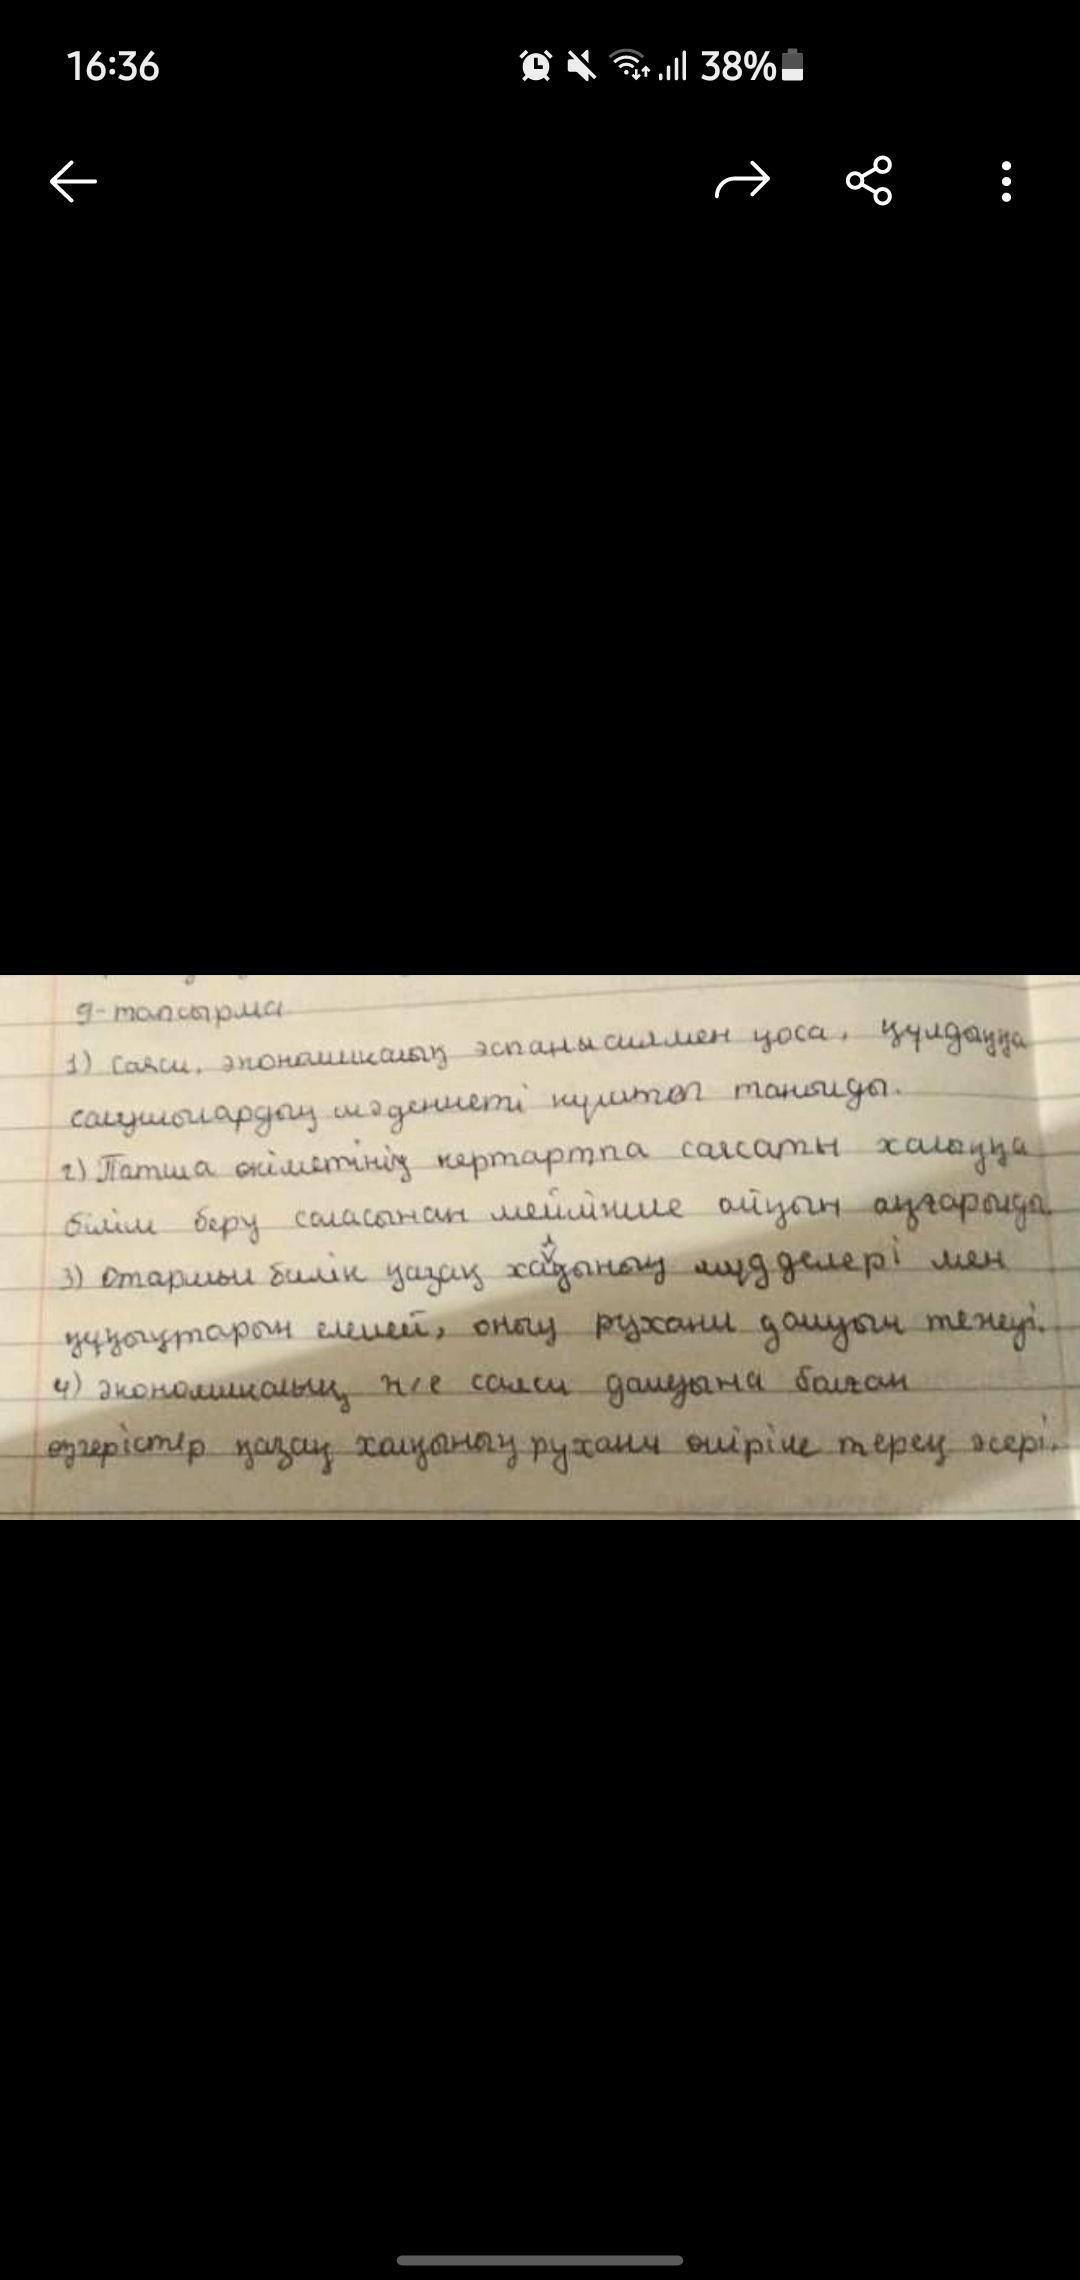 16:36
38%
9-тапсырма
1) Саяси, экономикалық экспансиямен қоса, құлдыққа
салушылардың мәдениеті күштеп танылды.
2) Патша өкіметінің кертартпа саясаты халыққа
білім беру саласынан мейлінше айқын аңғарылды
3) Отаршыл билік қазақ халқының мүдделері мен
құқықтарын елемей, оның рухани дамуын тежеуі.
4) Экономикалық ж/е саяси дамуына болған
өзгерістер қазақ халқының рухани өміріне терең әсері.